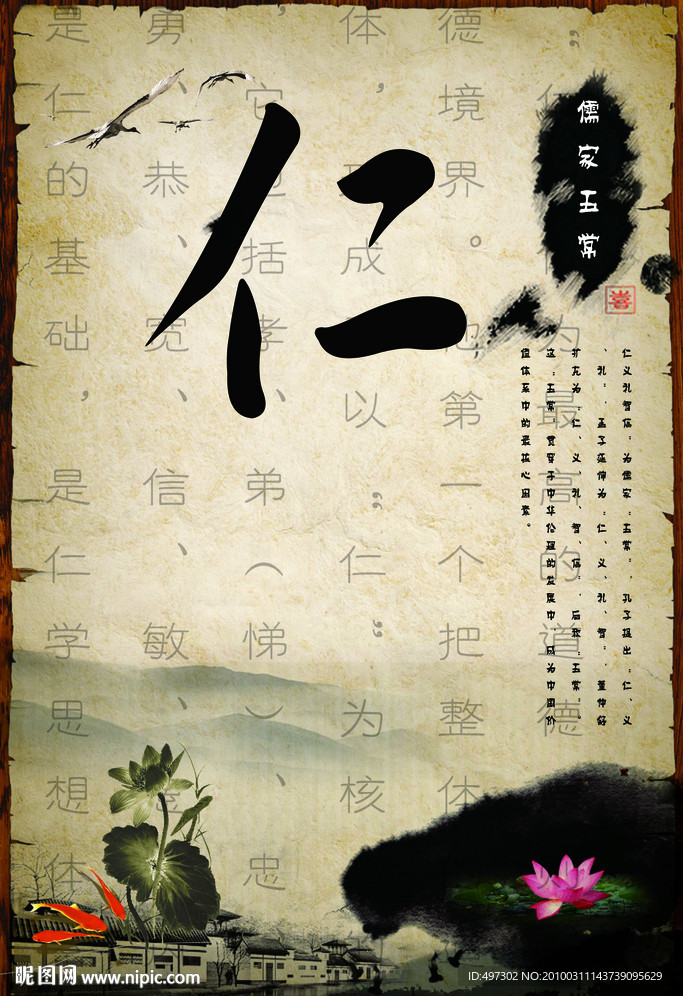 儒家五常
仁
仁义礼智信“为儒家“五常”，孔子提出“仁、义
、礼”，孟子延伸为“仁、义、礼、智”，董仲舒
扩充为“仁、义、礼、智、信”，后称“五常”。
这“五常”贯穿于中华伦理的发展中，成为中国价
值体系中的最核心因素。
”为最高的道德
德境界。他第一个把整体
体，成以“仁”为核
，它包括孝、弟（悌）、忠
勇、恭、宽、信、敏、
是仁的基础，是仁学思想体
昵图网 www.nipic.com
ID:497302 NO:20100311143739095629